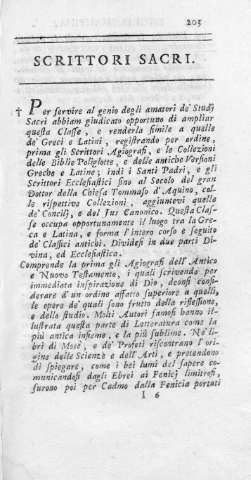 203
SCRITTORI SACRI.
† Per servire al genio degli amatori de' Studj
Sacri abbiam giudicato opportuno di ampliar
questa Classe, e renderla simile a quelle
de' Greci e Latini, registrando per ordine,
prima gli Scrittori Agiografi, e le Collezioni
delle Biblie Poliglotte, e delle antiche Versioni
Greche e Latine; indi i Santi Padri, e gli
Scrittori Ecclesiastici fino al Secolo del gran
Dottor della Chiesa Tommaso d' Aquino, col-
le rispettive Collezioni, aggiuntevi quelle
de' Concilj, e del Jus Canonico. Questa Clas-
se occupa opportunamente il luogo tra la Gre-
ca e Latina, e forma l'intero corso e seguito
de' Classici antichi. Dividesi in due parti Di-
vina, ed Ecclesiastica.
Comprende la prima gli Agiografi dell' Antico
e Nuovo Testamento, i quali scrivendo per
immediata inspirazione di Dio, deonsi consi-
derare d' un ordine affatto superiore a quelli,
le opere de' quali sono frutto della riflessione,
e dello studio. Molti Autori famosi hanno il-
lustrata questa parte di Letteratura come la
più antica insieme, e la più sublime. Ne' li-
bri di Mosè, e de' Profeti riscontrano l' ori-
gine delle Scienze e dell' Arti, e pretendono
di spiegare, come i bei lumi del sapere co-
municandosi dagli Ebrei ai Fenicj limitrofi,
furono poi per Cadmo dalla Fenicia portati
I 6